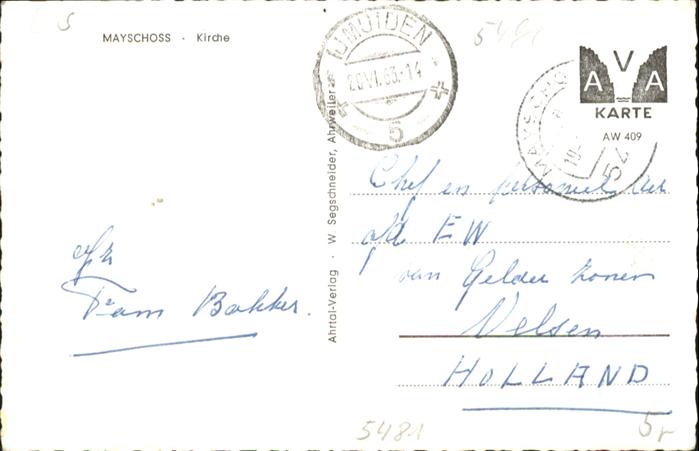 MAYSCHOSS · Kirche
IJMUIDEN
20 VI. 63.-14
5
5481
V
A A
KARTE
AW 409
MAYSCHO
54
Ahrtal-Verlag · W. Segschneider, Ahrweiler
Chef en personeel der
afd EW
van Gelder Zonen
Velsen
HOLLAND
Fam Bakker.
5481